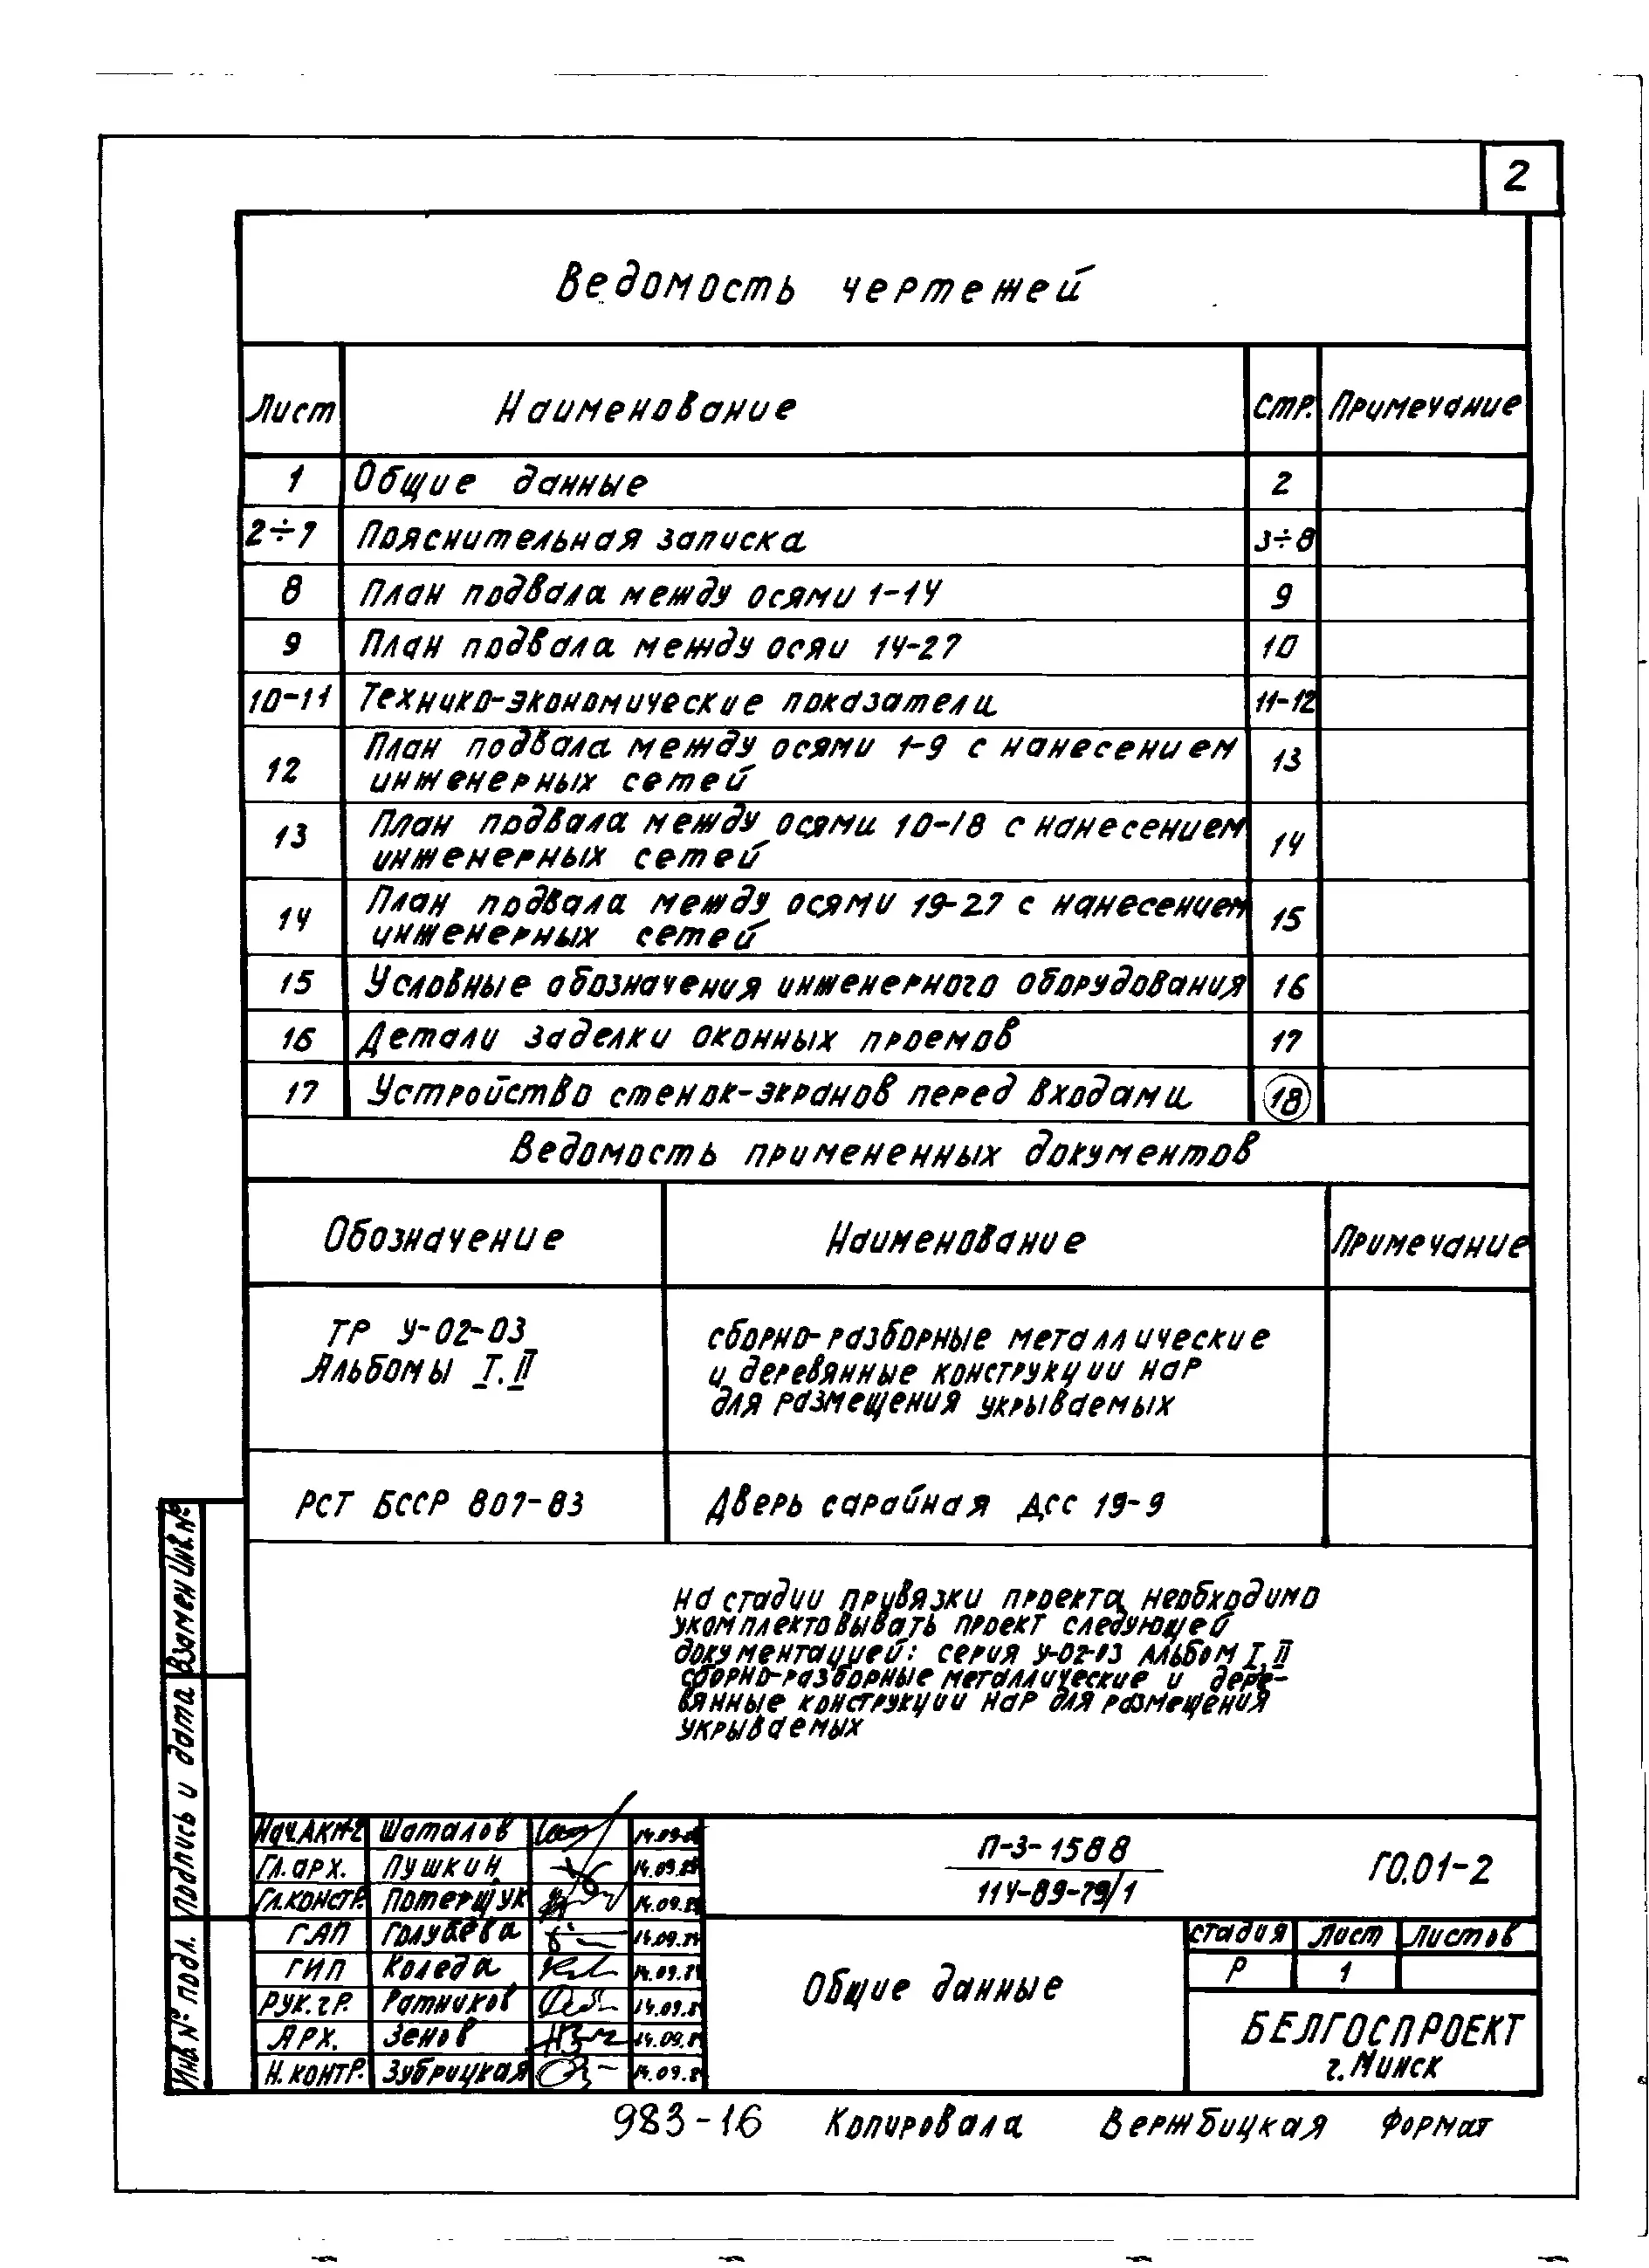 2
Ведомость чертежей
Лист Наименование Стр. Примечание
1 Общие данные 2
2÷7 Пояснительная записка 3÷8
8 План подвала между осями 1-14 9
9 План подвала между осяи 14-27 10
10-11 Технико-экономические показатели 11-12
12 План подвала между осями 1-9 с нанесением
инженерных сетей 13
13 План подвала между осями 10-18 с нанесением
инженерных сетей 14
14 План подвала между осями 19-27 с нанесением
инженерных сетей 15
15 Условные обозначения инженерного оборудования 16
16 Детали заделки оконных проемов 17
17 Устройство стенок-экранов перед входами 18
Ведомость примененных документов
Обозначение Наименование Примечание
ТР У-02-03
Альбомы I. II
сборно-разборные металлические
и деревянные конструкции нар
для размещения укрываемых
РСТ БССР 807-83 Дверь сарайная ДСС 19-9
На стадии привязки проекта необходимо
укомплектовывать проект следующей
документацией: серия У-02-03 Альбом I, II
сборно-разборные металлические и дере-
вянные конструкции нар для размещения
укрываемых
Взамен Инв.№
Подпись и дата
Инв № подл.
Нач.АКМ-2 Шаталов
Гл.арх. Пушкин
Гл.констр. Потерщук
ГАП Голубева
ГИП Коледа
Рук.гр. Ратников
Арх. Зенов
Н.контр. Зубрицкая
П-3-1588
114-89-79/1
ГО.01-2
Общие данные
стадия Лист Листов
Р 1
БЕЛГОСПРОЕКТ
г.Минск
983-16 Копировала Вержбицкая Формат